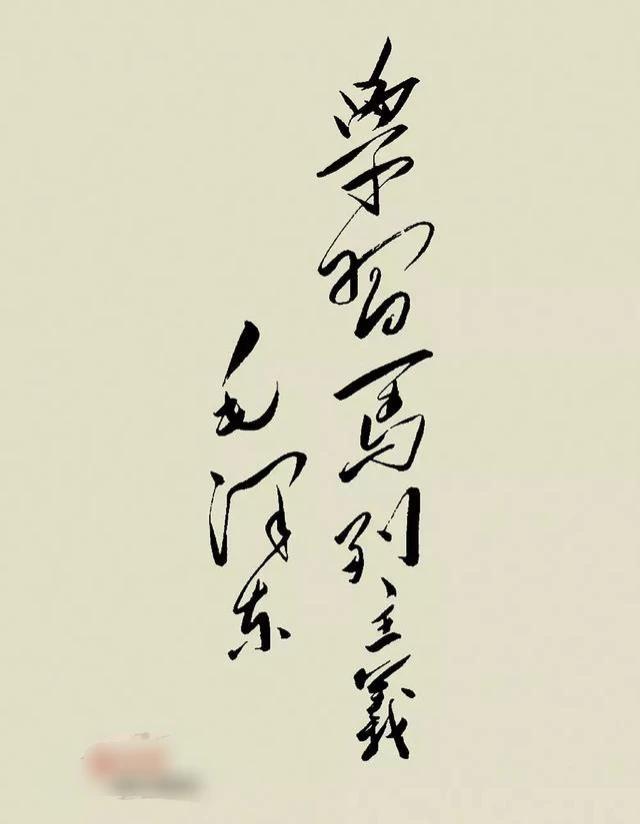 學習馬列主義
毛泽东